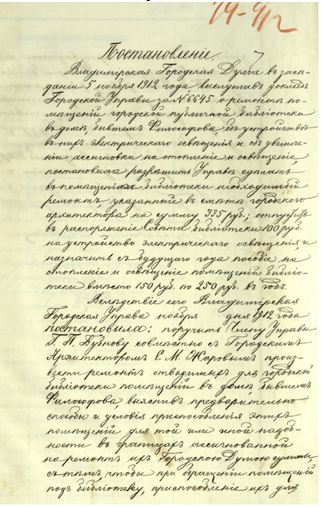 Постановленіе.
Владимірская Городская Дума въ засѣ-
даніи 5 ноября 1912 года выслушавъ докладъ
Городской Управы за № 6645 о ремонтѣ по-
мѣщеній городской публичной библіотеки
въ домѣ бывшемъ Философова, объ устройствѣ
въ нихъ электрическаго освѣщенія и объ увеличе-
ніи ассигновки на отопленіе и освѣщеніе
постановила: разрѣшить Управѣ сдѣлать
въ помѣщеніяхъ библіотеки необходимый
ремонтъ указанный въ смѣтѣ городского
архитектора на сумму 335 руб; отпустить
въ распоряженіе Совѣта библіотеки 100 руб.
на устройство электрическаго освѣщенія и
назначить съ будущаго года пособіе на
отопленіе и освѣщеніе помѣщеній библіо-
теки вмѣсто 150 руб. по 250 руб. въ годъ.
Вслѣдствіе сего Владимірская
Городская Управа ноября дня 1912 года
постановила: поручить Члену Управы
Бубнову совмѣстно съ Городскимъ
Архитекторомъ С. М. Жаровымъ произ-
вести ремонтъ отводимыхъ для городской
библіотеки помѣщеній въ домѣ бывшемъ
Философова выяснивъ предварительно
способы и условія приспособленія этихъ
помѣщеній для той или иной надоб-
ности въ границахъ ассигнованной
на ремонтъ ихъ Городскою Думою суммы,
съ тѣмъ чтобы при обращеніи помѣщеній
подъ библіотеку, приспособленіе ихъ для